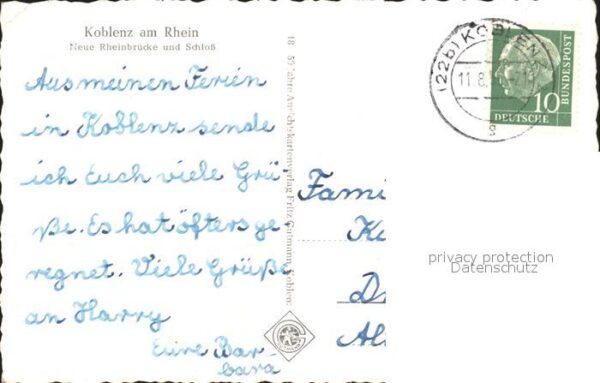 Koblenz am Rhein
Neue Rheinbrücke und Schloß
Aus meinen Ferien
in Koblenz sende
ich Euch viele Grü
ße. Es hat öfters ge-
regnet. Viele Grüße
an Harry
Eure Bar-
bara
18
(22b) KOBLENZ
11.8.
10
DEUTSCHE
BUNDESPOST
Fami
Ke
D
Al
privacy protection
Datenschutz